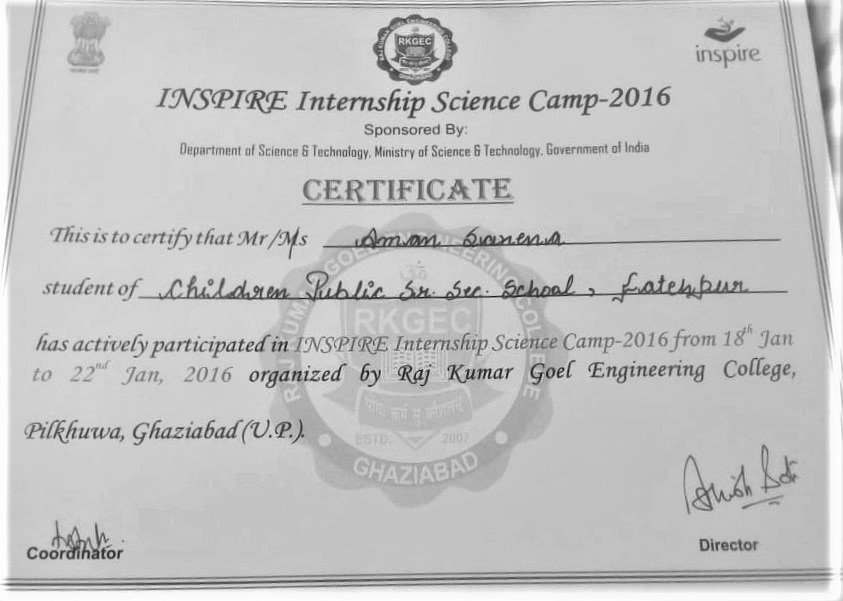 RKGEC
GHAZIABAD
inspire
INSPIRE Internship Science Camp-2016
Sponsored By:
Department of Science & Technology, Ministry of Science & Technology, Government of India
CERTIFICATE
This is to certify that Mr/Ms Aman Saxena
student of Children Public Sr. Sec. School, Fatehpur
has actively participated in INSPIRE Internship Science Camp-2016 from 18th Jan
to 22nd Jan, 2016 organized by Raj Kumar Goel Engineering College,
Pilkhuwa, Ghaziabad (U.P.).
RAJ KUMAR GOEL ENGINEERING COLLEGE
RKGEC
ESTD: 2007
GHAZIABAD
Coordinator
Director